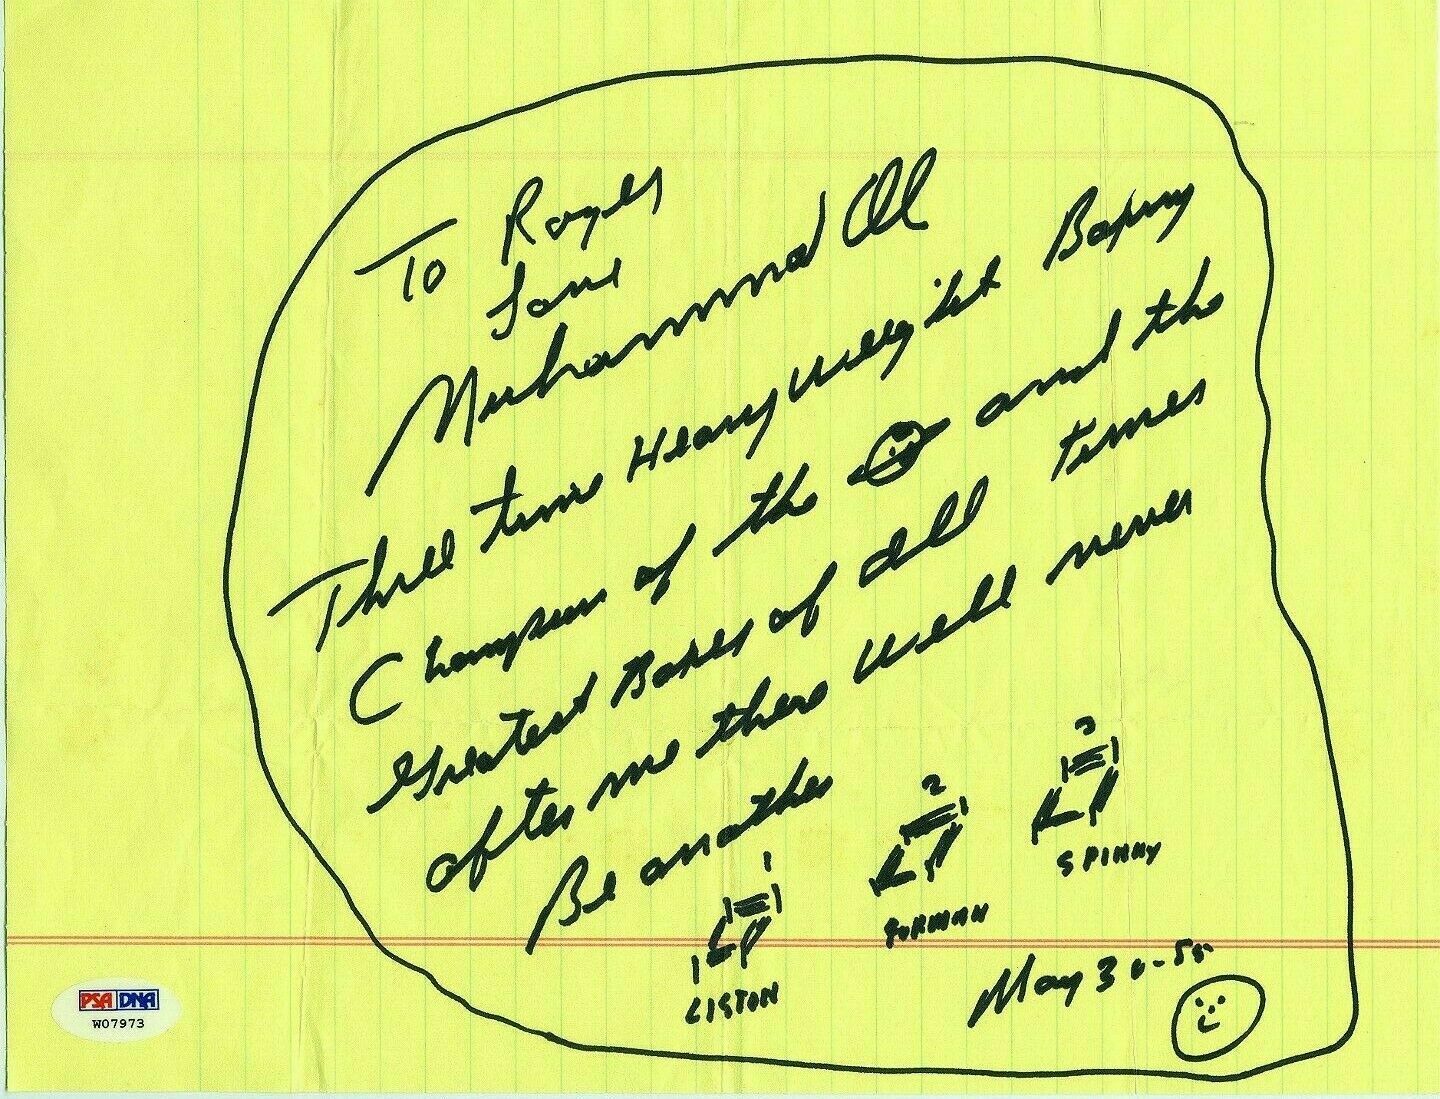 To Roger
Love
Muhammad Ali
Three time Heavyweight Boxing
Champion of the and the
Greatest Boxer of all times
after me there will never
Be another
1
LISTON
2
FORMAN
3
SPINKY
May 30-85
PSA DNA
W07973